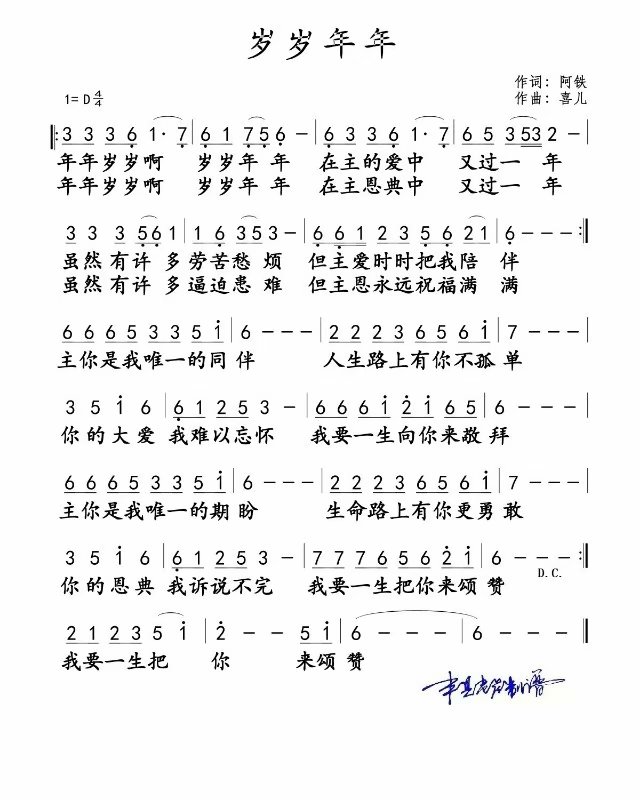 岁岁年年
作词: 阿铁
1= D 4/4
作曲: 喜儿
‖: 3 3 3 6 1· 7 | 6 1 7 5 6 – | 3 3 3 6 1· 7 | 6 5 3 5 3 2 – |
年年岁岁啊 岁岁年 年 在主的爱中 又过一 年
年年岁岁啊 岁岁年 年 在主恩典中 又过一 年
3 3 3 5 6 1 | 1 6 1 2 3 5 3 – | 6 6 1 2 2 3 5 6 2 1 | 6 – – – :‖
虽然有许 多劳苦愁 烦 但主爱时时把我陪 伴
虽然有许 多逼迫患 难 但主恩永远祝福满 满
6 6 6 5 3 3 5 i | 6 – – – | 2 2 2 3 6 5 6 i | 7 – – – |
主你是我唯一的同 伴 人生路上有你不孤 单
3 5 i 6 | 6 1 2 5 3 – | 6 6 6 i 2 i 6 5 | 6 – – – |
你的大爱 我难以忘怀 我要一生向你来敬 拜
6 6 6 5 3 3 5 i | 6 – – – | 2 2 2 3 6 5 6 i | 7 – – – |
主你是我唯一的期 盼 生命路上有你更勇 敢
3 5 i 6 | 6 1 2 5 3 – | 7 7 7 6 5 6 2 i | 6 – – – :‖
D.C.
你的恩典 我诉说不完 我要一生把你来颂 赞
2 1 2 3 5 i | 2 – – 5 i | 6 – – – | 6 – – – ‖
我要一生把 你 来颂 赞